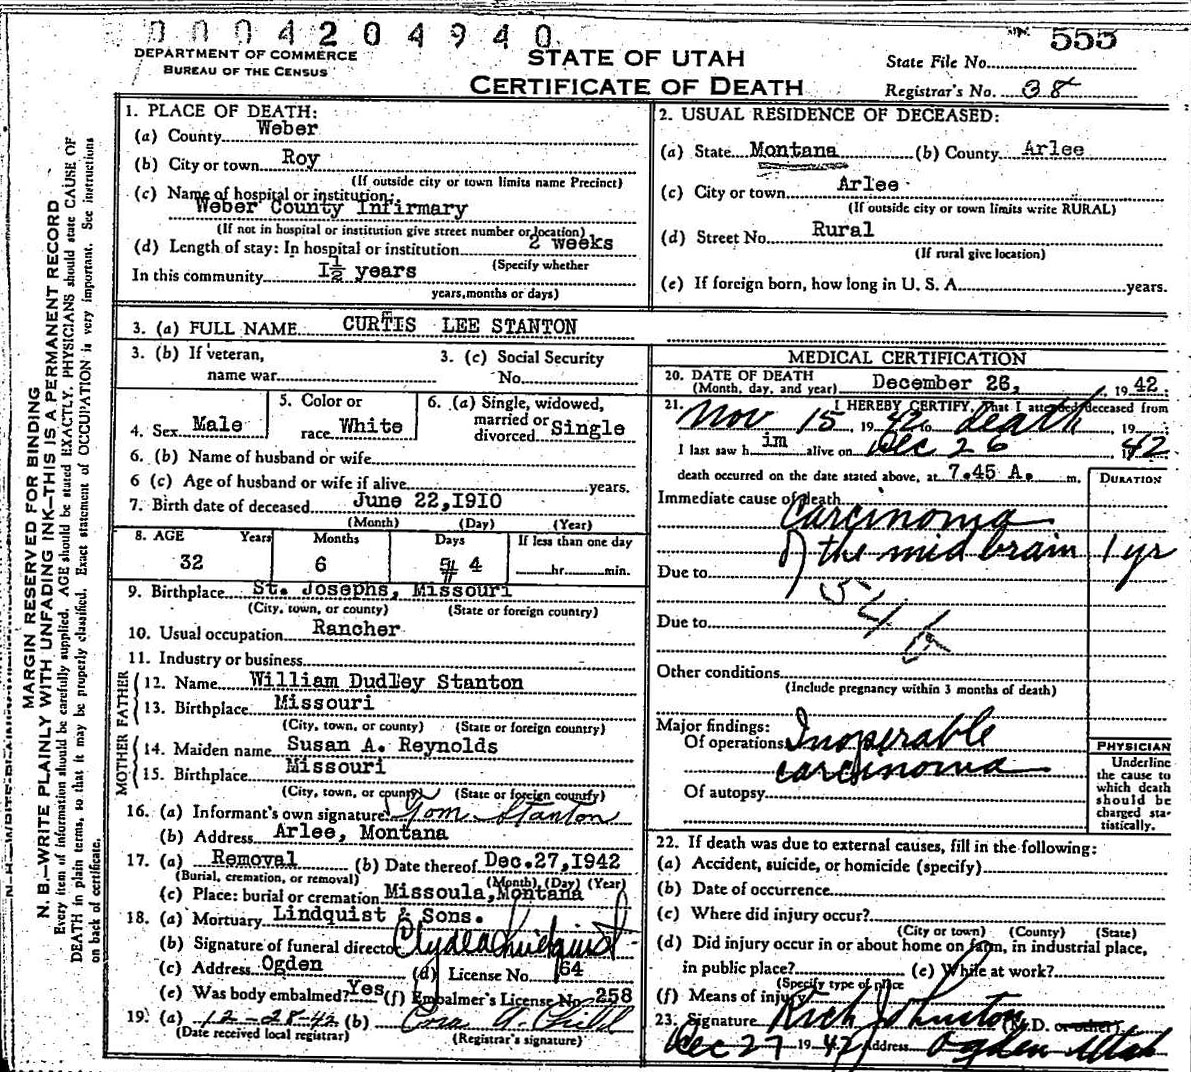 0004204940
DEPARTMENT OF COMMERCE
BUREAU OF THE CENSUS
STATE OF UTAH
CERTIFICATE OF DEATH
555
State File No.
Registrar's No. 38
MARGIN RESERVED FOR BINDING
N. B.—WRITE PLAINLY WITH UNFADING INK—THIS IS A PERMANENT RECORD
Every item of information should be carefully supplied. AGE should be stated EXACTLY. PHYSICIANS should state CAUSE OF
DEATH in plain terms, so that it may be properly classified. Exact statement of OCCUPATION is very important. See instructions
on back of certificate.
1. PLACE OF DEATH:
(a) County Weber
(b) City or town Roy
(If outside city or town limits name Precinct)
(c) Name of hospital or institution:
Weber County Infirmary
(If not in hospital or institution give street number or location)
(d) Length of stay: In hospital or institution 2 weeks
(Specify whether
In this community I½ years
years, months or days)
2. USUAL RESIDENCE OF DECEASED:
(a) State Montana (b) County Arlee
(c) City or town Arlee
(If outside city or town limits write RURAL)
(d) Street No. Rural
(If rural give location)
(e) If foreign born, how long in U. S. A. years.
3. (a) FULL NAME CURTIS LEE STANTON
3. (b) If veteran,
name war
3. (c) Social Security
No.
4. Sex Male
5. Color or
race White
6. (a) Single, widowed,
married or
divorced Single
6. (b) Name of husband or wife
6 (c) Age of husband or wife if alive years.
7. Birth date of deceased June 22,1910
(Month) (Day) (Year)
8. AGE Years Months Days If less than one day
32 6 4 hr. min.
9. Birthplace St. Josephs, Missouri
(City, town, or county) (State or foreign country)
10. Usual occupation Rancher
11. Industry or business
FATHER
12. Name William Dudley Stanton
13. Birthplace Missouri
(City, town, or county) (State or foreign country)
MOTHER
14. Maiden name Susan A. Reynolds
15. Birthplace Missouri
(City, town, or county) (State or foreign country)
16. (a) Informant's own signature Tom Stanton
(b) Address Arlee, Montana
17. (a) Removal (b) Date thereof Dec.27,1942
(Burial, cremation, or removal) (Month) (Day) (Year)
(c) Place: burial or cremation Missoula, Montana
18. (a) Mortuary Lindquist & Sons.
(b) Signature of funeral director Clyde Lindquist
(c) Address Ogden (d) License No. 64
(e) Was body embalmed? Yes (f) Embalmer's License No. 258
19. (a) 12-28-42 (b) Cora A. Child
(Date received local registrar) (Registrar's signature)
MEDICAL CERTIFICATION
20. DATE OF DEATH
(Month, day, and year) December 26, 1942.
21. I HEREBY CERTIFY, That I attended deceased from
Nov 15 1942 to death 19
I last saw him alive on Dec 26 1942
death occurred on the date stated above, at 7.45 A. m.
DURATION
Immediate cause of death
Carcinoma
of the mid brain 1 yr
Due to
54
Due to
Other conditions
(Include pregnancy within 3 months of death)
Major findings:
Of operations Inoperable
carcinoma
Of autopsy
PHYSICIAN
Underline
the cause to
which death
should be
charged sta-
tistically.
22. If death was due to external causes, fill in the following:
(a) Accident, suicide, or homicide (specify)
(b) Date of occurrence
(c) Where did injury occur?
(City or town) (County) (State)
(d) Did injury occur in or about home on farm, in industrial place,
in public place? (e) While at work?
(Specify type of place
(f) Means of injury
23. Signature Rich Johnston (M.D. or other)
Dec 27 1942 Address Ogden Utah